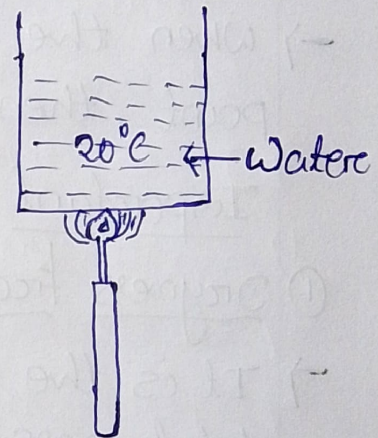 20°C
Watere